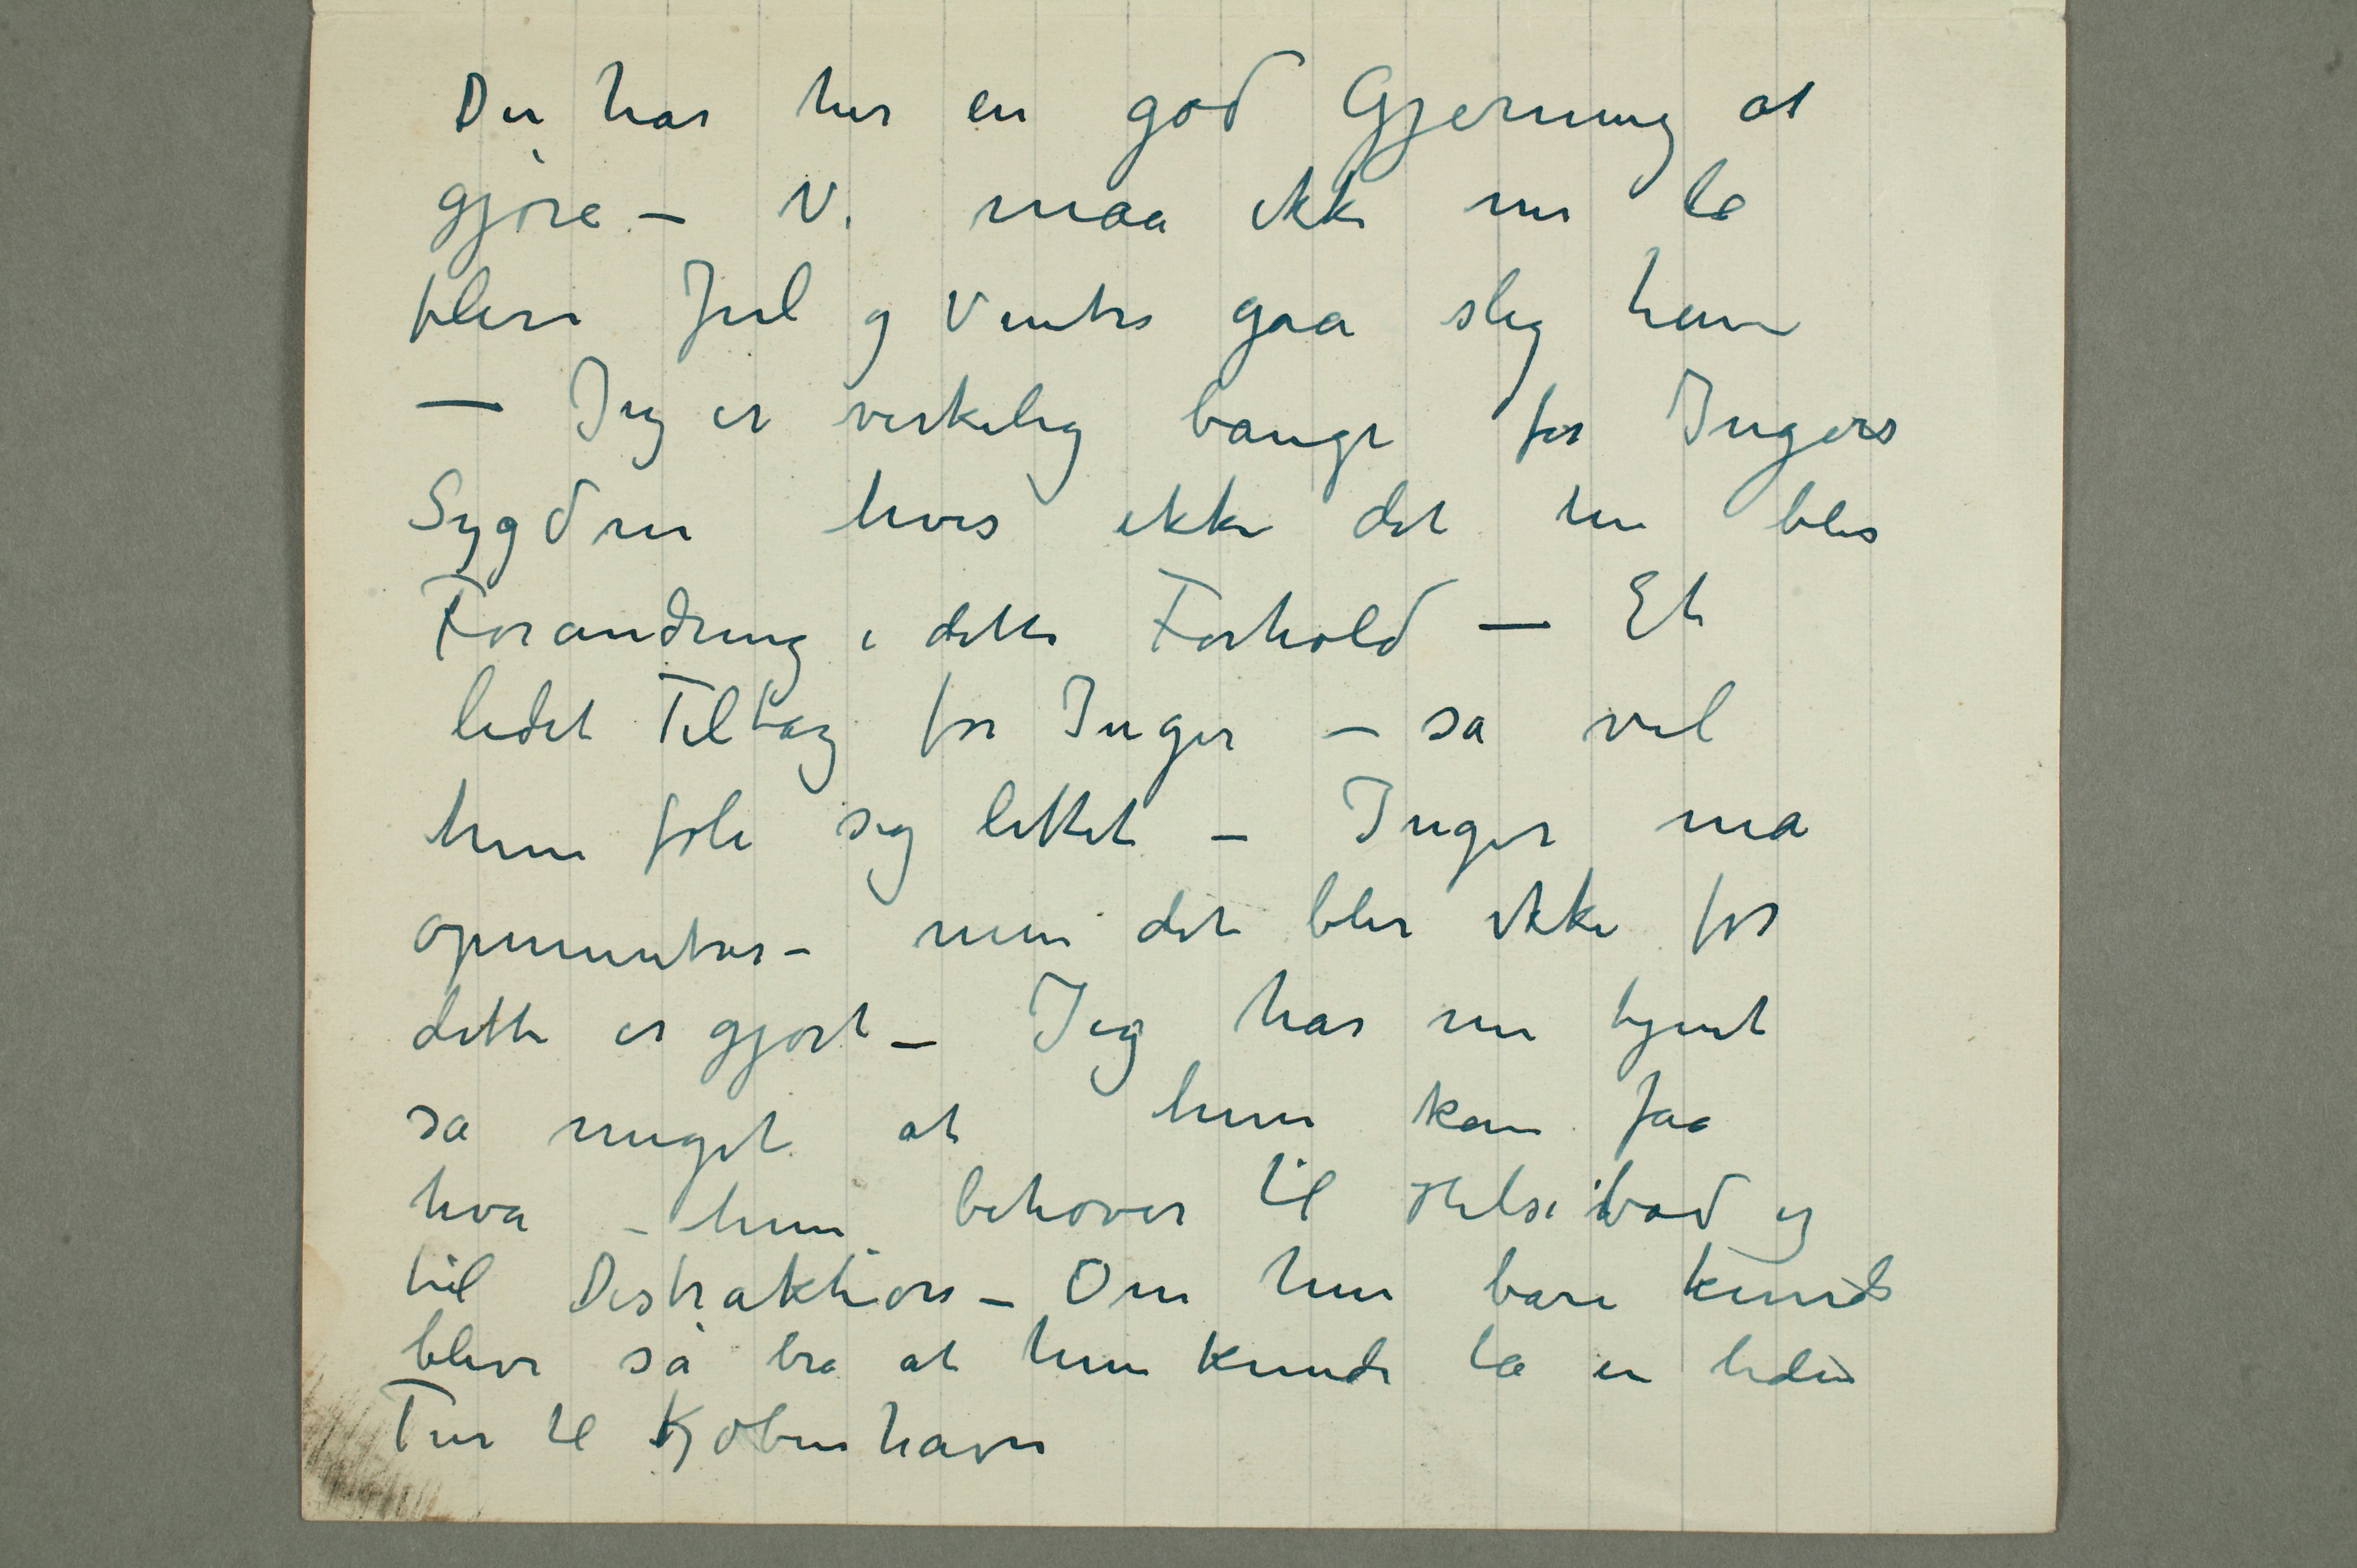 Du har her en god Gjerning at
gjøre – Vi maa ikke nu la
flere Jul og Vintre gaa slig hen
— Jeg er virkelig bange for Ingers
Sygdom hvis ikke det nu blir
Forandring i dette Forhold — Et
lidet Tiltag for Inger – så vil
hun føle sig lettet – Inger må
opmuntres – men det blir ikke før
dette er gjort – Jeg har nu tjent
så meget at hun kan faa
hva – hun behøver til Helsebod og
til Distraktion – Om hun bare kunde
blive så bra at hun kunde ta en liden
Tur til Kjøbenhavn